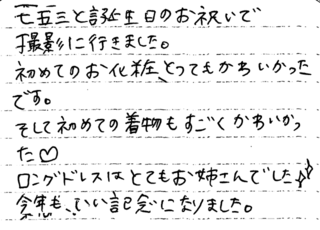 七五三と誕生日のお祝いで
撮影に行きました。
初めてのお化粧、とってもかわいかった
です。
そして初めての着物もすごくかわいかっ
た♡
ロングドレスはとてもお姉さんでした♪
今年も、いい記念になりました。